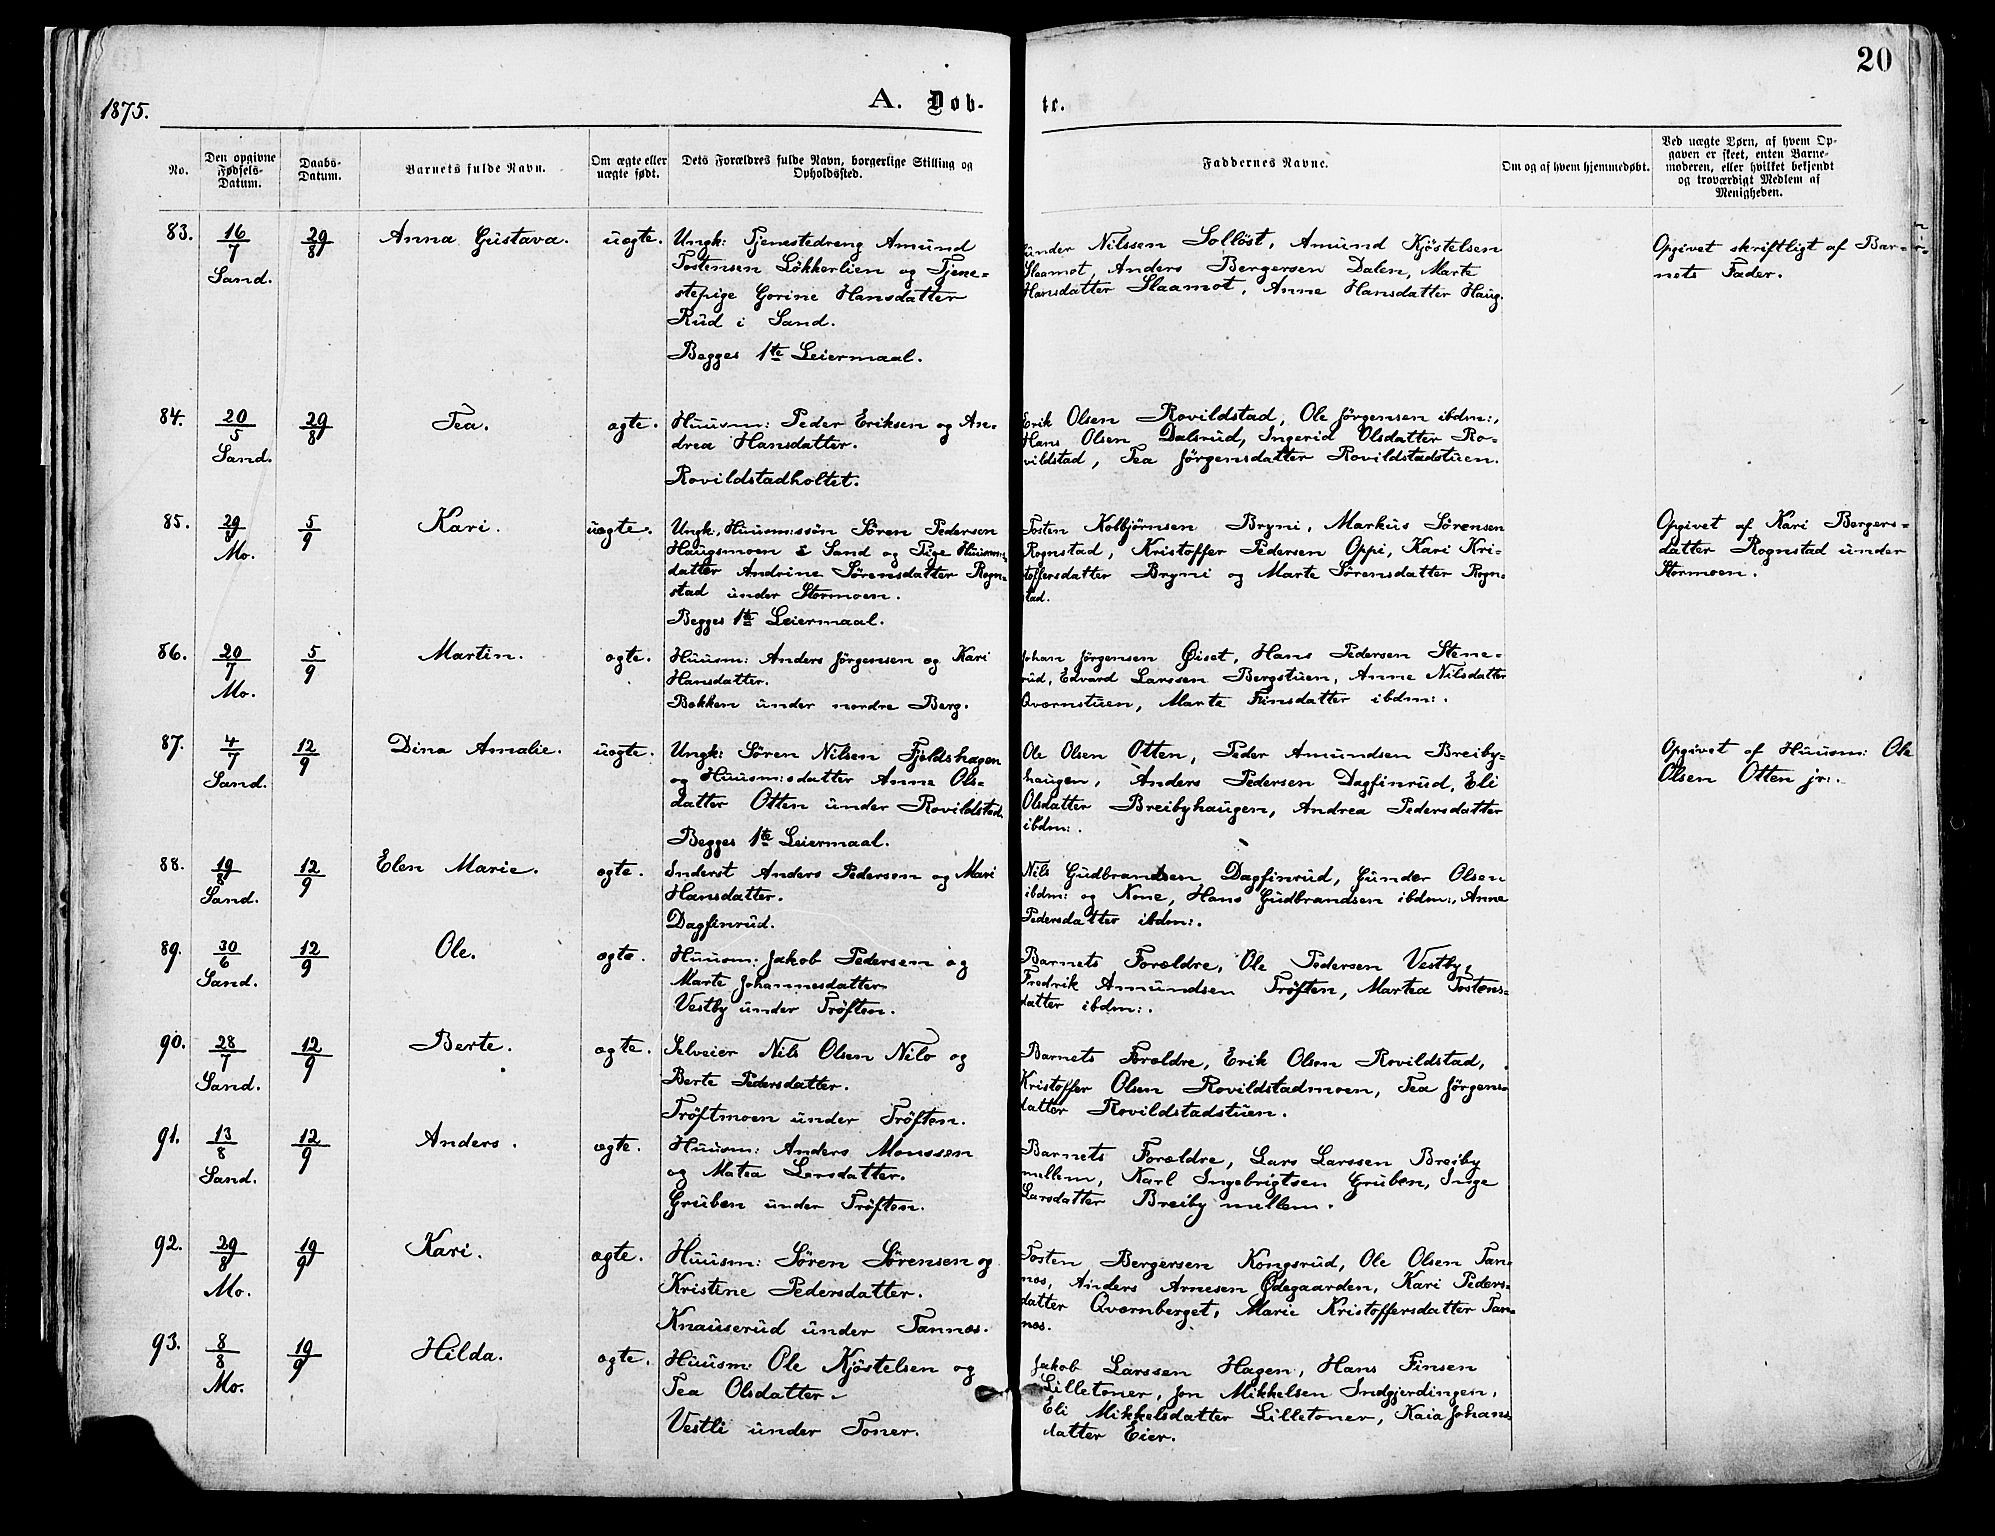 20
1875.
A. Døb-
te.
No.
Den opgivne
Fødsels-
Datum.
Daabs-
Datum.
Barnets fulde Navn.
Om ægte eller
uægte født.
Dets Forældres fulde Navn, borgerlige Stilling og
Opholdssted.
Faddernes Navne.
Om og af hvem hjemmedøbt.
Ved uægte Børn, af hvem Op-
gaven er skeet, enten Barne-
moderen, eller hvilket bekjendt
og troværdigt Medlem af
Menigheden.
83.
16/7
Sand.
29/8
Anna Gustava.
uægte.
Ungk: Tjenestedreng Amund
Tostensen Løkkerlien og Tjene-
stepige Gorine Hansdatter
Rud i Sand.
Begges 1te Leiermaal.
Gunder Nilssen Solløst, Amund Kjøstelsen
Slaamot, Anders Bergersen Dalen, Marte
Hansdatter Slaamot, Anne Hansdatter Haug.
Opgivet skriftligt af Bar-
nets Fader.
84.
20/5
Sand.
29/8
Tea.
ægte.
Huusm: Peder Eriksen og An-
drea Hansdatter.
Rovildstadholtet.
Erik Olsen Rovildstad, Ole Jørgensen ibdm:,
Hans Olsen Dalsrud, Ingerid Olsdatter Ro-
vildstad, Tea Jørgensdatter Rovildstadstuen.
85.
29/8
Mo.
5/9
Kari.
uægte.
Ungk, Huusm:ssøn Søren Pedersen
Haugsmoen i Sand og Pige Huusm:s
datter Andrine Sørensdatter Rogn-
stad under Stormoen.
Begges 1te Leiermaal.
Tosten Kolbjørnsen Bryni, Markus Sørensen
Rognstad, Kristoffer Pedersen Oppi, Kari Kri-
stoffersdatter Bryni og Marte Sørensdatter Rogn-
stad.
Opgivet af Kari Bergers-
datter Rognstad under
Stormoen.
86.
20/7
Mo.
5/9
Martin.
ægte.
Huusm: Anders Jørgensen og Kari
Hansdatter.
Bakken under nordre Berg.
Johan Jørgensen Øiset, Hans Pedersen Stene-
rud, Edvard Larssen Bergstuen, Anne Nilsdatter
Qværnstuen, Marte Finsdatter ibdm:.
87.
4/7
Sand.
12/9
Dina Amalie.
uægte.
Ungk: Søren Nilsen Fjeldshagen
og Huusm:sdatter Anne Ols-
datter Otten under Rovildstad.
Begges 1te Leiermaal.
Ole Olsen Otten, Peder Amundsen Breiby-
haugen, Anders Pedersen Dagfinrud, Eli
Olsdatter Breibyhaugen, Andrea Pedersdatter
ibdm:.
Opgivet af Huusm: Ole
Olsen Otten jr:.
88.
19/8
Sand.
12/9
Elen Marie.
ægte.
Inderst Anders Pedersen og Mari
Hansdatter.
Dagfinrud.
Nils Gudbrandsen Dagfinrud, Gunder Olsen
ibdm: og Kone, Hans Gudbrandsen ibdm:, Anne
Pedersdatter ibdm:.
89.
30/6
Sand.
12/9
Ole.
ægte.
Huusm: Jakob Pedersen og
Marte Johannesdatter
Vestby under Trøften.
Barnets Forældre, Ole Pedersen Vestby,
Fredrik Amundsen Trøften, Martea Tostens-
datter ibdm:.
90.
28/7
Sand.
12/9
Berte.
ægte.
Selveier Nils Olsen Nilo og
Berte Pedersdatter.
Trøftmoen under Trøften.
Barnets Forældre, Erik Olsen Rovildstad,
Kristoffer Olsen Rovildstadmoen, Tea Jørgens-
datter Rovildstadstuen.
91.
13/8
Sand.
12/9
Anders.
ægte.
Huusm: Anders Monssen
og Matea Larsdatter.
Gruben under Trøften.
Barnets Forældre, Lars Larssen Breiby
mellem, Karl Ingebrigtsen Gruben, Inge
Larsdatter Breiby mellem.
92.
29/8
Mo.
19/9
Kari.
ægte.
Huusm: Søren Sørensen og
Kristine Pedersdatter.
Knauserud under Tannæs.
Tosten Bergersen Kongsrud, Ole Olsen Tan-
næs, Anders Arnesen Ødegaarden, Kari Peders-
datter Qværnberget, Marie Kristoffersdatter Tan-
næs.
93.
8/8
Mo.
19/9
Hilda.
ægte.
Huusm: Ole Kjøstelsen og
Tea Olsdatter
Vestli under Toner.
Jakob Larssen Hagen, Hans Finsen
Lilletoner, Jon Mikkelsen Indgjerdingen,
Eli Mikkelsdatter Lilletoner, Kaia Johans-
datter Eier.